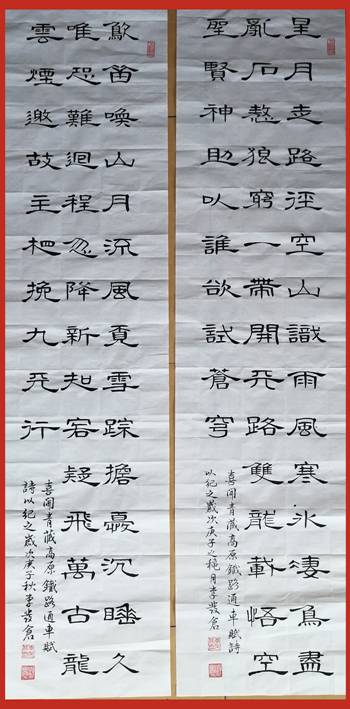 星月走路徑空山識雨風寒冰凄鳥盡
亂石熬狼窮一帶開天路雙龍載悟空
聖賢神助以誰欲試蒼穹
喜聞青藏高原鐵路通車賦詩
以紀之歲次庚子之月李發倉
笛喚山月流風貢雪踪擔憂沉睡久
唯恐難迴程忽降新知客疑飛萬古龍
雲煙邀故主把挽九天行
喜聞青藏高原鐵路通車賦
詩以紀之歲次庚子秋李發倉